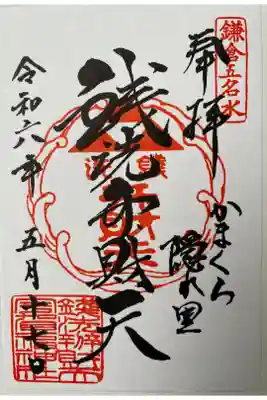 鎌倉五名水
奉拝
かまくら
隠れ里
銭洗弁財天
令和六年
五月十七日